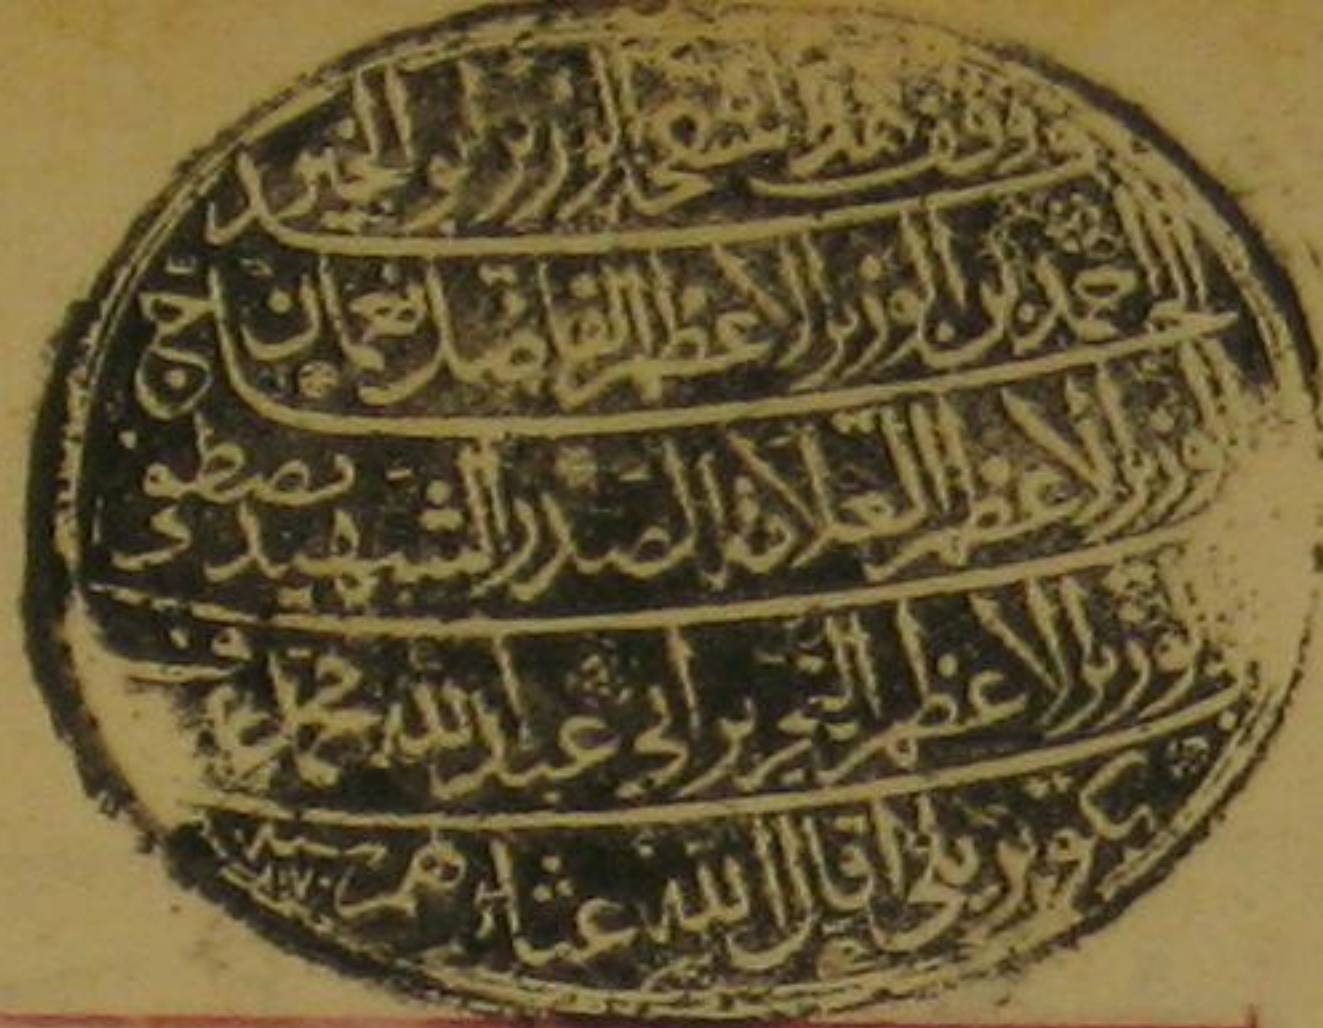 وقف هذه النسخة الوزير ابو الخير
الحاج احمد بن الوزير الاعظم الفاضل نعمان بن
الوزير الاعظم العلامة الصدر الشهيد مصطفى بن
الوزير الاعظم النحرير ابي عبد الله محمد عرف
بكوبريلي اقال الله عثارهم سنة